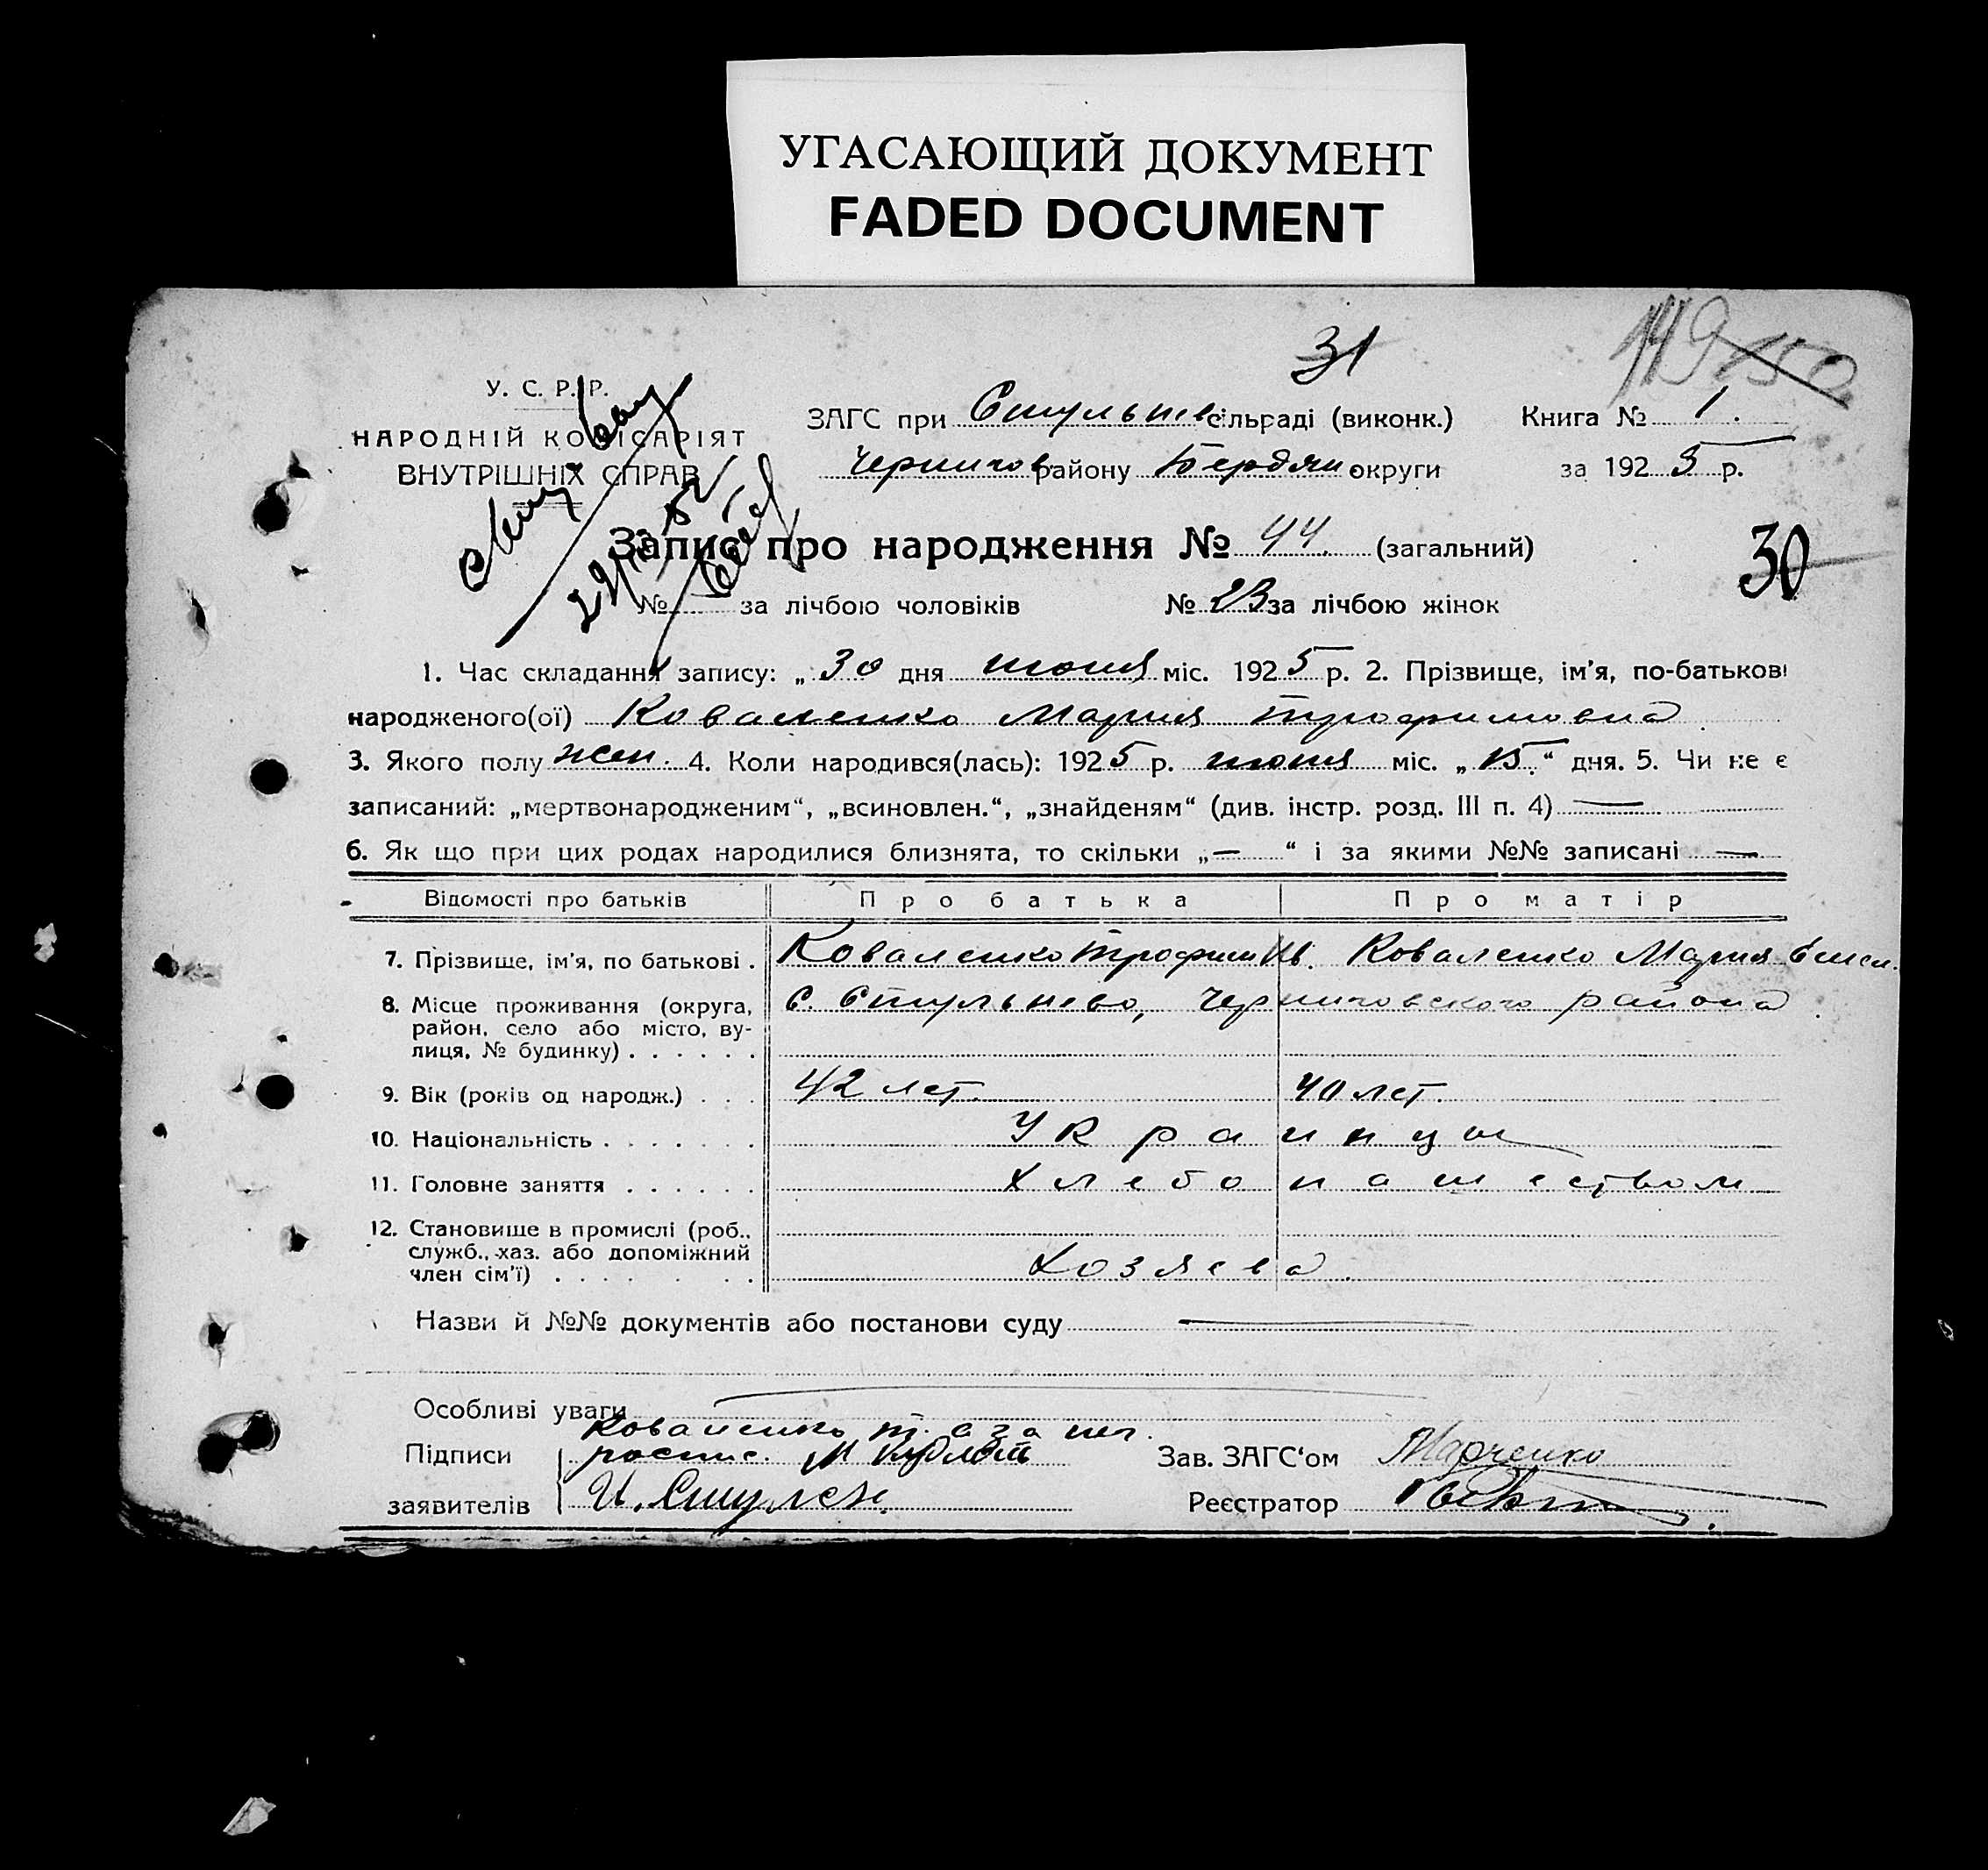 УГАСАЮЩИЙ ДОКУМЕНТ
FADED DOCUMENT
31
149 150
У. С. Р. Р.
НАРОДНІЙ КОМІСАРІЯТ
ВНУТРІШНІХ СПРАВ
ЗАГС при Стульнев. сільраді (виконк.) Книга № 1.
Чернигов. району Бердян. округи за 1925 р.
Запис про народження № 44. (загальний)
30
№ за лічбою чоловіків № 23 за лічбою жінок
1. Час складання запису: „30 дня июня міс. 1925 р. 2. Прізвище, ім'я, по-батькові
народженого(ої) Коваленко Мария Трофимовна
3. Якого полу жен. 4. Коли народився(лась): 1925 р. июня міс. „15.“ дня. 5. Чи не є
записаний: „мертвонародженим“, „всиновлен.“, „знайденям“ (див. інстр. розд. III п. 4) —
6. Як що при цих родах народилися близнята, то скільки „—“ і за якими №№ записані —
Відомості про батьків Про батька Про матір
7. Прізвище, ім'я, по батькові . Коваленко Трофим Ив. Коваленко Мария
8. Місце проживання (округа, с. Стульнево, Черниговского района
район, село або місто, ву-
лиця, № будинку) . . . . . .
9. Вік (років од народж.) . . . 42 лет. 40 лет.
10. Національність . . . . . . . Украинцы
11. Головне заняття . . . . . . Хлебопашеством
12. Становише в промислі (роб.,
служб., хаз. або допоміжний
член сім'ї) . . . . . . . Хозяева.
Назви й №№ документів або постанови суду —
Особливі уваги
Коваленко Т. а за нег.
Підписи роспис. М Зав. ЗАГС‘ом Марченко
заявителів И. Реєстратор